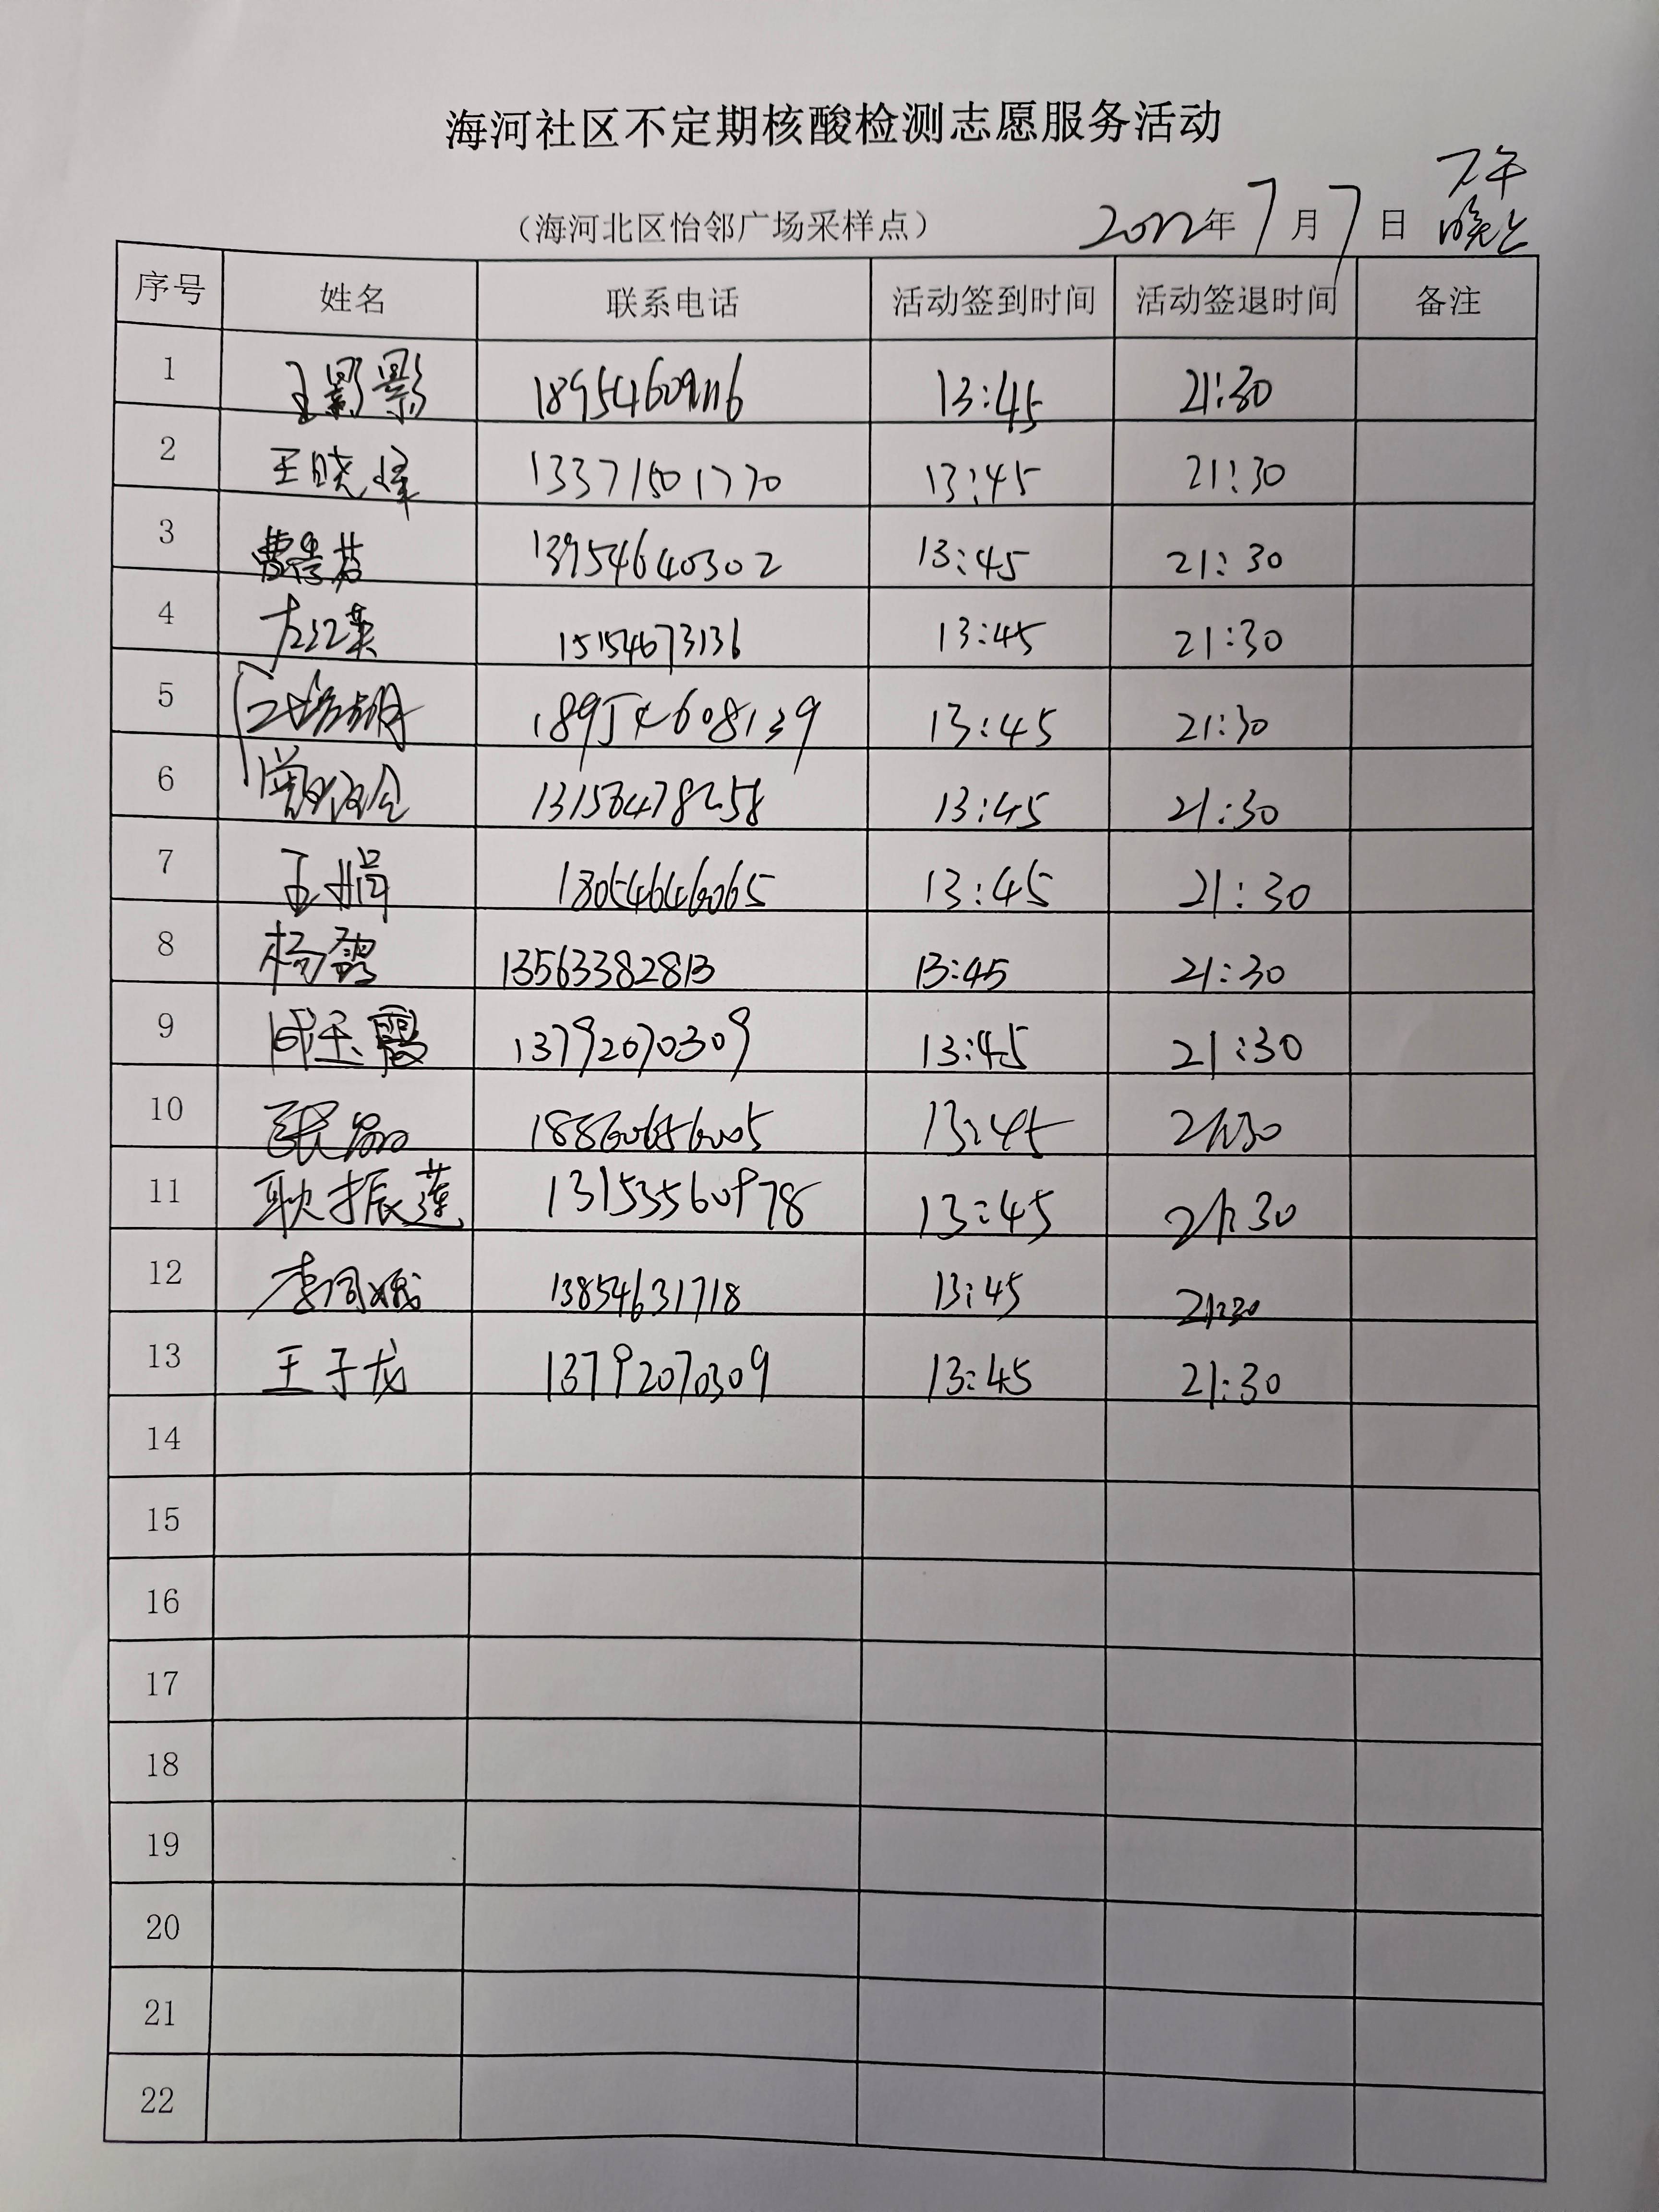 海河社区不定期核酸检测志愿服务活动
下午
（海河北区怡邻广场采样点） 2022年7月7日 晚上
序号 姓名 联系电话 活动签到时间 活动签退时间 备注
1 王影影 18954609116 13:45 21:30
2 王晓峰 13371501770 13:45 21:30
3 13954640302 13:45 21:30
4 左江英 15154673136 13:45 21:30
5 18954608139 13:45 21:30
6 13:45 21:30
7 王娟 18054646065 13:45 21:30
8 杨露 13563382813 13:45 21:30
9 成玉霞 13792070309 13:45 21:30
10 13:45 21:30
11 耿振莲 13153560978 13:45 21:30
12 13854631718 13:45 21:30
13 王子龙 13792070309 13:45 21:30
14
15
16
17
18
19
20
21
22